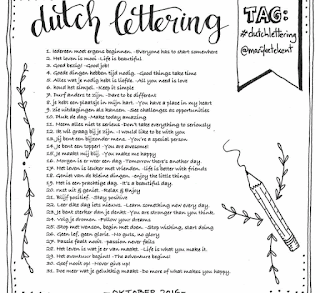 dutch lettering
TAG:
#dutchlettering
@marijkeletekent
1. Iedereen moet ergens beginnen. - Everyone has to start somewhere
2. Het leven is mooi - Life is beautiful
3. Goed bezig! - Good job!
4. Goede dingen hebben tijd nodig. - Good things take time
5. Alles wat je nodig hebt is liefde. - All you need is love
6. Houd het simpel. - Keep it simple
7. Durf anders te zijn. - Dare to be different
8. Je hebt een plaatsje in mijn hart. - You have a place in my heart
9. Zie uitdagingen als kansen. - See challenges as opportunities
10. Pluk de dag - Make today amazing
11. Neem alles niet te serieus. - Don't take everything so seriously
12. Ik wil graag bij je zijn. - I would like to be with you
13. Jij bent een bijzonder mens. - You're a special person
14. Je bent een topper! - You are awesome!
15. Je maakt mij blij. - You make me happy
16. Morgen is er weer een dag - Tomorrow there's another day.
17. Het leven is leuker met vrienden. - Life is better with friends
18. Geniet van de kleine dingen. - enjoy the little things
19. Het is een prachtige dag. - It's a beautiful day
20. Rust uit & geniet. - Relax & Enjoy
21. Blijf positief. - Stay positive
22. Leer elke dag iets nieuws. - Learn something new every day
23. Je bent sterker dan je denkt - You are stronger than you think.
24. Volg je dromen. - Follow your dreams
25. Stop met wensen, begin met doen. - Stop wishing, start doing
26. Geen lef, geen glorie. - No guts, no glory
27. Passie faalt nooit - passion never fails
28. Het leven is wat je er van maakt. - Life is what you make it.
29. Het avontuur begint! - The adventure begins!
30. Geef nooit op! - Never give up!
31. Doe meer wat je gelukkig maakt - Do more of what makes you happy.
- OKTOBER 2016 -